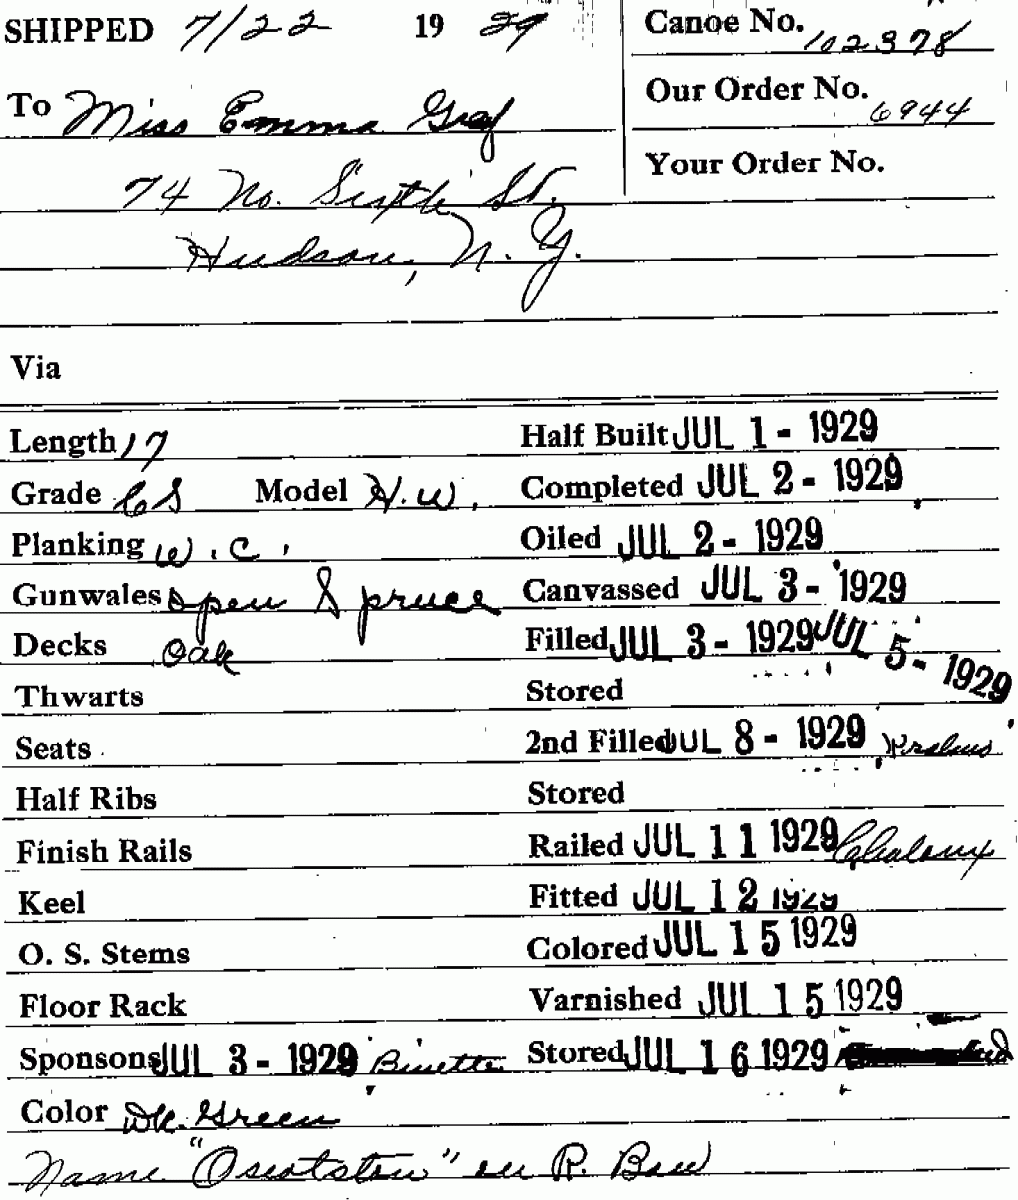 SHIPPED 7/22 1929
Canoe No. 102378
To Miss Emma Gray
Our Order No. 6944
74 No. Sixth St.
Your Order No.
Hudson, N. Y.
Via
Length 17
Half Built JUL 1 - 1929
Grade CS Model H.W.
Completed JUL 2 - 1929
Planking W.C.
Oiled JUL 2 - 1929
Gunwales open Spruce
Canvassed JUL 3 - 1929
Decks Oak
Filled JUL 3 - 1929 JUL 5 - 1929
Thwarts
Stored
Seats
2nd Filled JUL 8 - 1929
Half Ribs
Stored
Finish Rails
Railed JUL 11 1929 Chaloux
Keel
Fitted JUL 12 1929
O. S. Stems
Colored JUL 15 1929
Floor Rack
Varnished JUL 15 1929
Sponsons JUL 3 - 1929 Binette
Stored JUL 16 1929
Color Dk. Green
Name "" on R. Bow